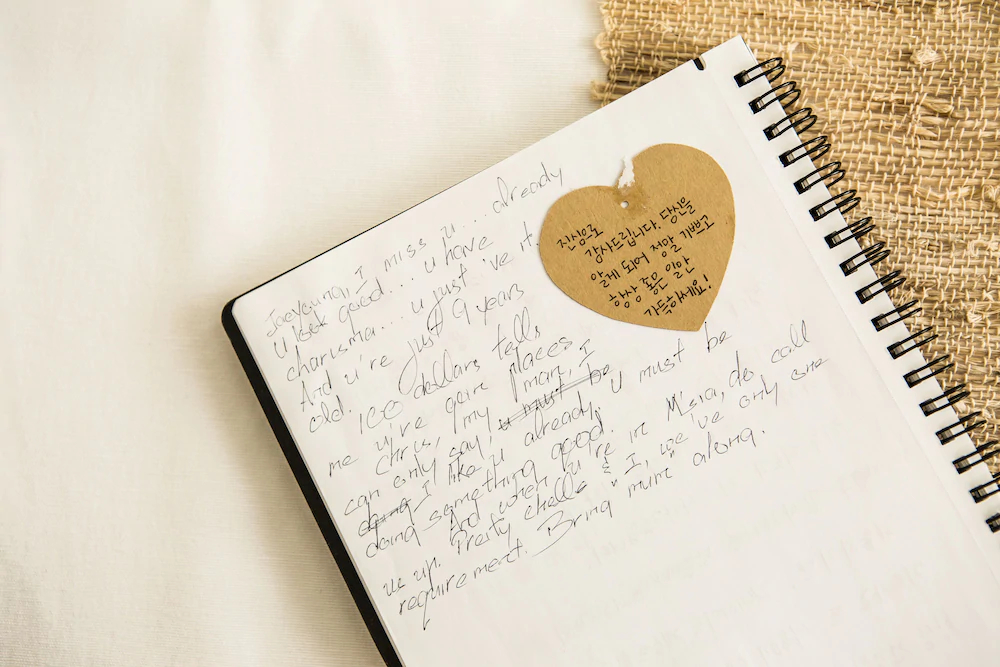 Jaeyoung, I miss u... already
u look good... u have
charisma... u just 've it.
And u're just 9 years
old. 100 dollars tells
me u're goin places
Chris, my man, I
can only say, u must be
doing I like u already, u must be
doing something good.
And when u're in M'sia, do call
us up. Pretty chells & I, we've only one
requirement. Bring "mum" along.
진심으로
감사드립니다. 당신을
알게 되어 정말 기쁘고
항상 좋은 일만
가득하세요!